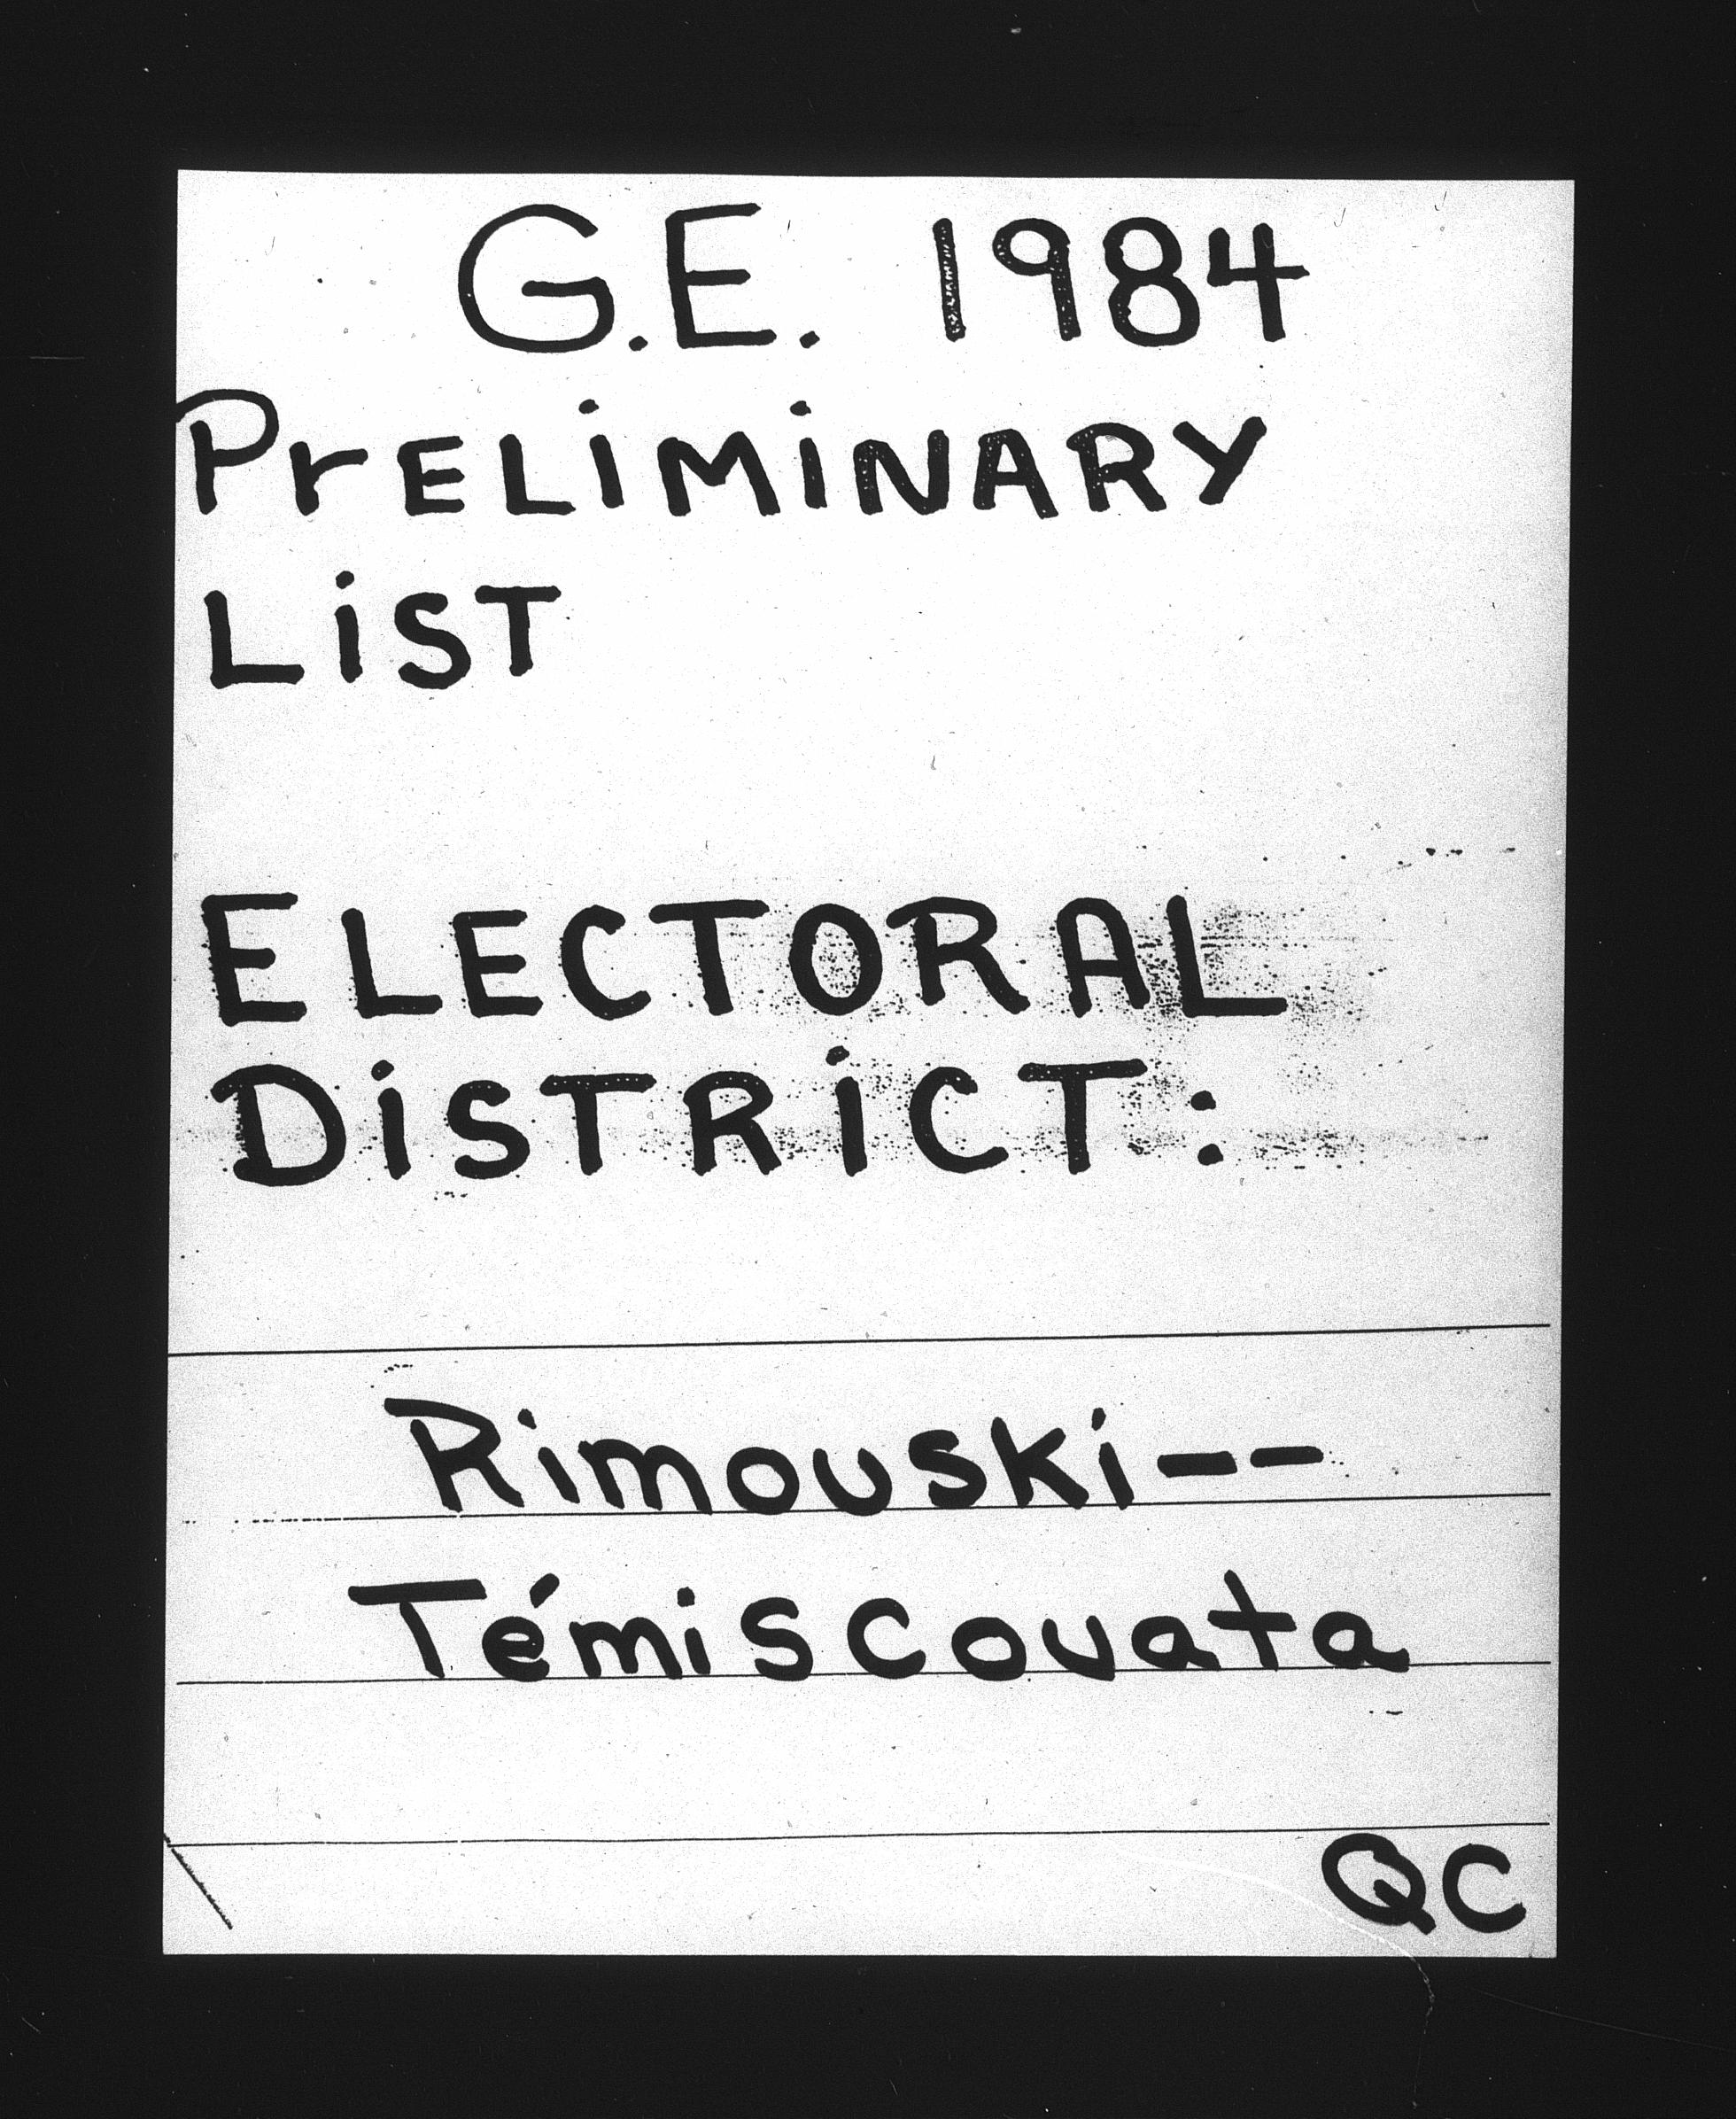 G.E. 1984
PrELiMiNARY
LiST
ELECTORAL
DiSTRiCT:
Rimouski--
Témiscouata
QC